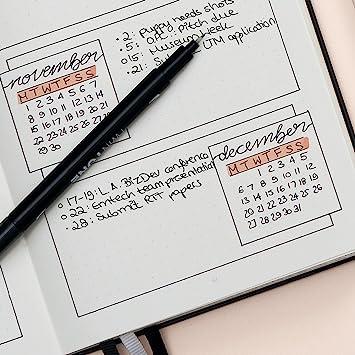 november
M T W T F S S
1 2 3 4 5 6 7
8 9 10 11 12 13 14
15 16 17 18 19 20 21
22 23 24 25 26 27 28
29 30
2: Puppy needs shots
5: pitch due
15: Museum Week
21: application
december
M T W T F S S
1 2 3 4 5
6 7 8 9 10 11 12
13 14 15 16 17 18 19
20 21 22 23 24 25 26
27 28 29 30 31
17-19: L.A. BizDev conference
22: Emtech team presentation
28: Submit RIT papers